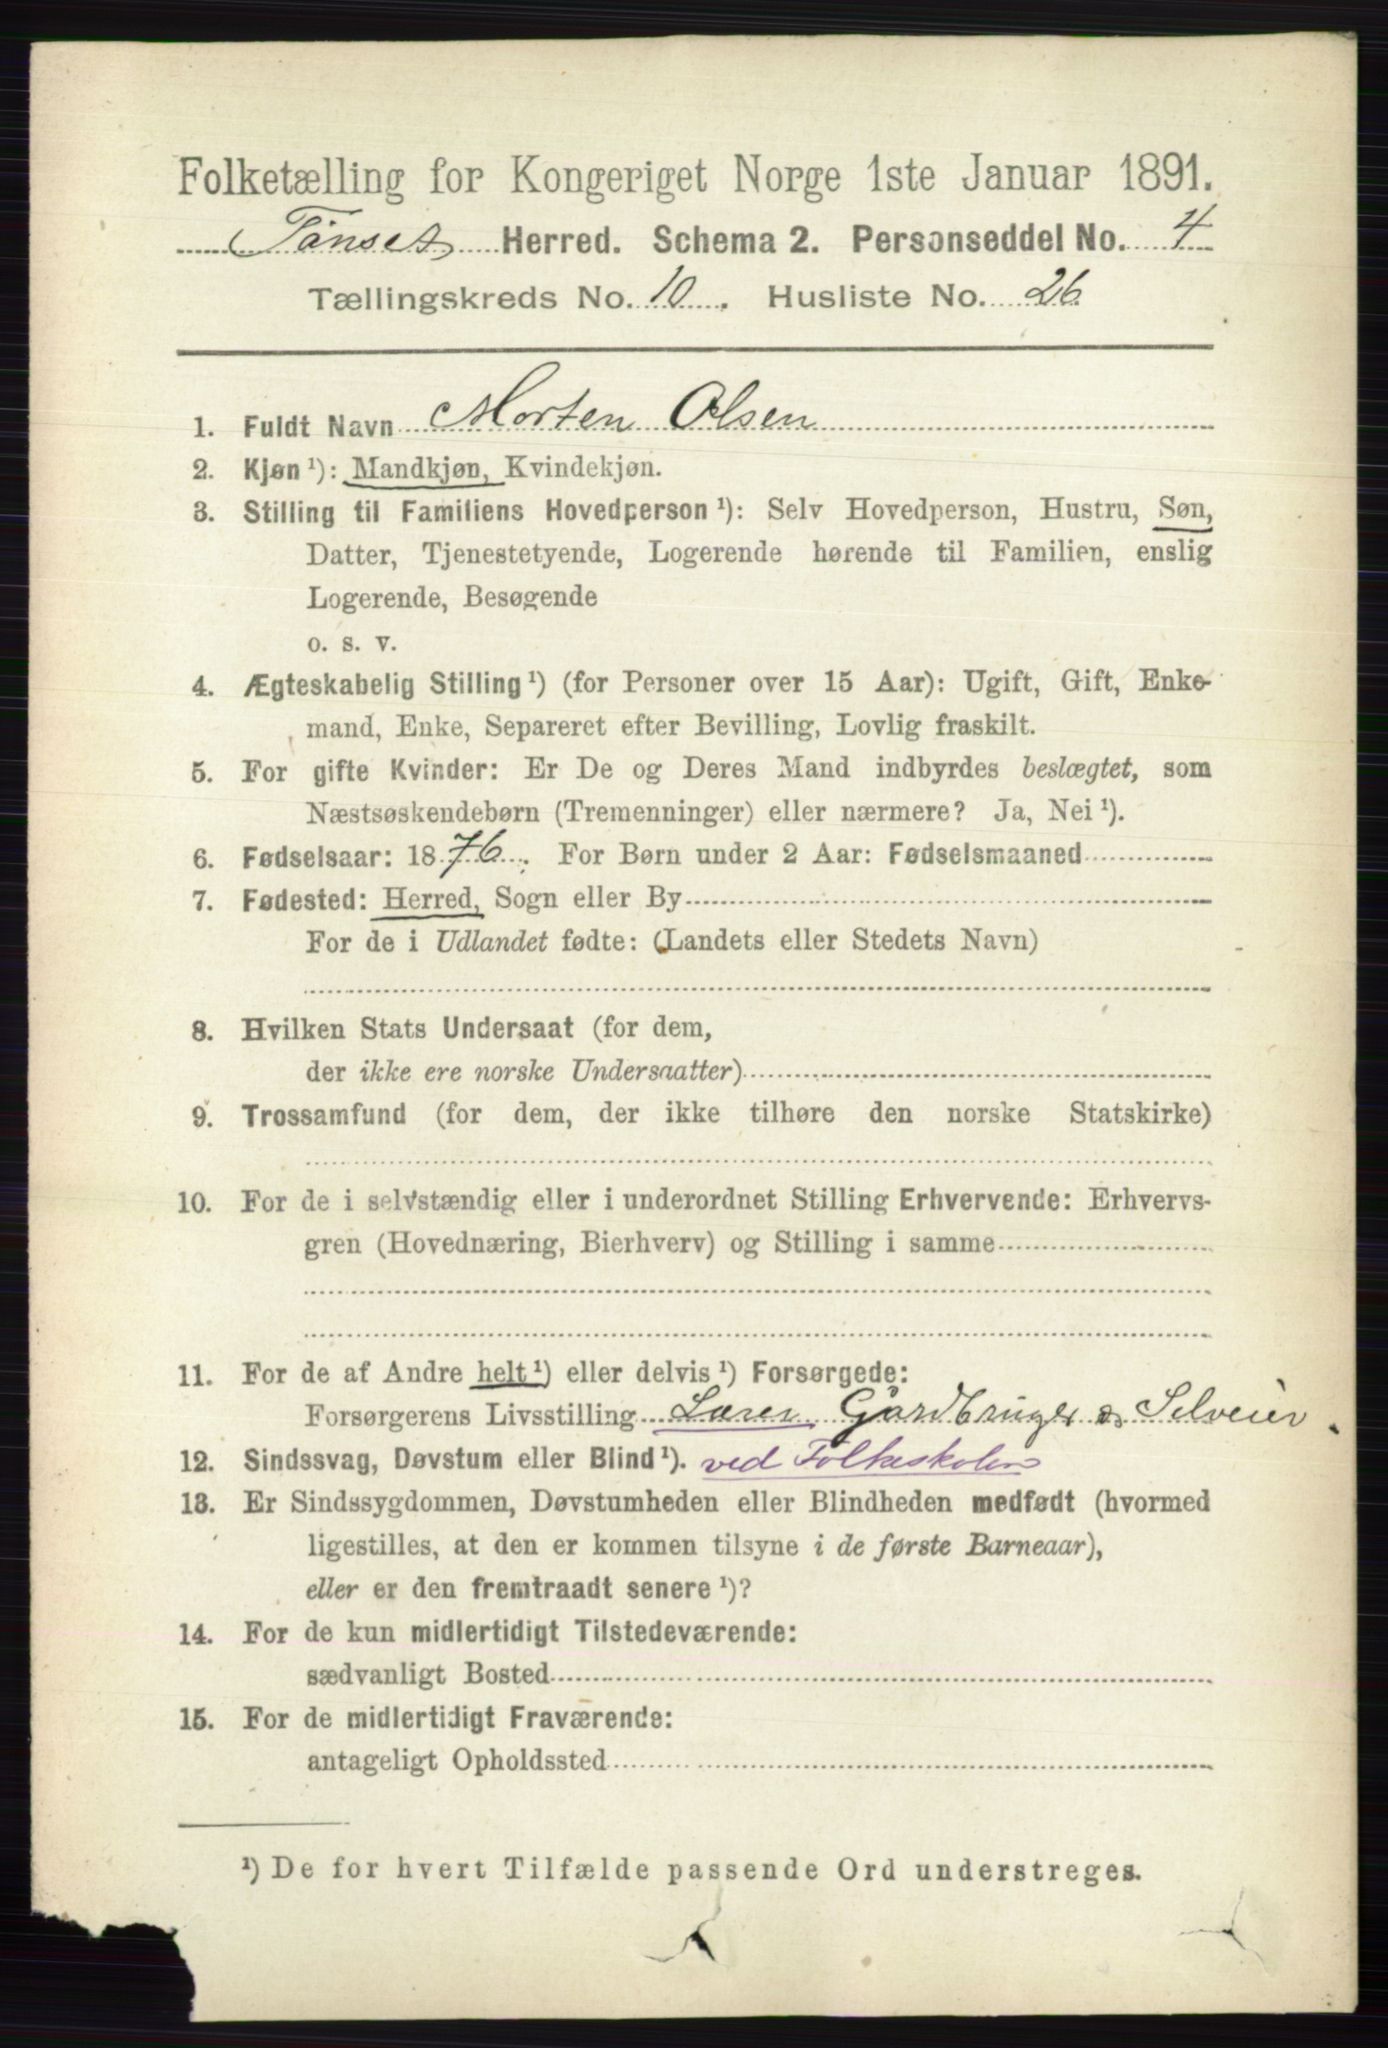 Folketælling for Kongeriget Norge 1ste Januar 1891.
Tønset Herred. Schema 2. Personseddel No. 4
Tællingskreds No. 10. Husliste No. 26
1. Fuldt Navn Morten Olsen
2. Kjøn ¹): Mandkjøn, Kvindekjøn.
3. Stilling til Familiens Hovedperson ¹): Selv Hovedperson, Hustru, Søn,
Datter, Tjenestetyende, Logerende hørende til Familien, enslig
Logerende, Besøgende
o. s. v.
4. Ægteskabelig Stilling ¹) (for Personer over 15 Aar): Ugift, Gift, Enke-
mand, Enke, Separeret efter Bevilling, Lovlig fraskilt.
5. For gifte Kvinder: Er De og Deres Mand indbyrdes beslægtet, som
Næstsøskendebørn (Tremenninger) eller nærmere? Ja, Nei ¹).
6. Fødselsaar: 1876. For Børn under 2 Aar: Fødselsmaaned
7. Fødested: Herred, Sogn eller By
For de i Udlandet fødte: (Landets eller Stedets Navn)
8. Hvilken Stats Undersaat (for dem,
der ikke ere norske Undersaatter)
9. Trossamfund (for dem, der ikke tilhøre den norske Statskirke)
10. For de i selvstændig eller i underordnet Stilling Erhvervende: Erhvervs-
gren (Hovednæring, Bierhverv) og Stilling i samme
11. For de af Andre helt ¹) eller delvis ¹) Forsørgede:
Forsørgerens Livsstilling Lærer Gårdbruger og Selveier
12. Sindssvag, Døvstum eller Blind ¹). ved Folkeskolen
13. Er Sindssygdommen, Døvstumheden eller Blindheden medfødt (hvormed
ligestilles, at den er kommen tilsyne i de første Barneaar),
eller er den fremtraadt senere ¹)?
14. For de kun midlertidigt Tilstedeværende:
sædvanligt Bosted
15. For de midlertidigt Fraværende:
antageligt Opholdssted
¹) De for hvert Tilfælde passende Ord understreges.